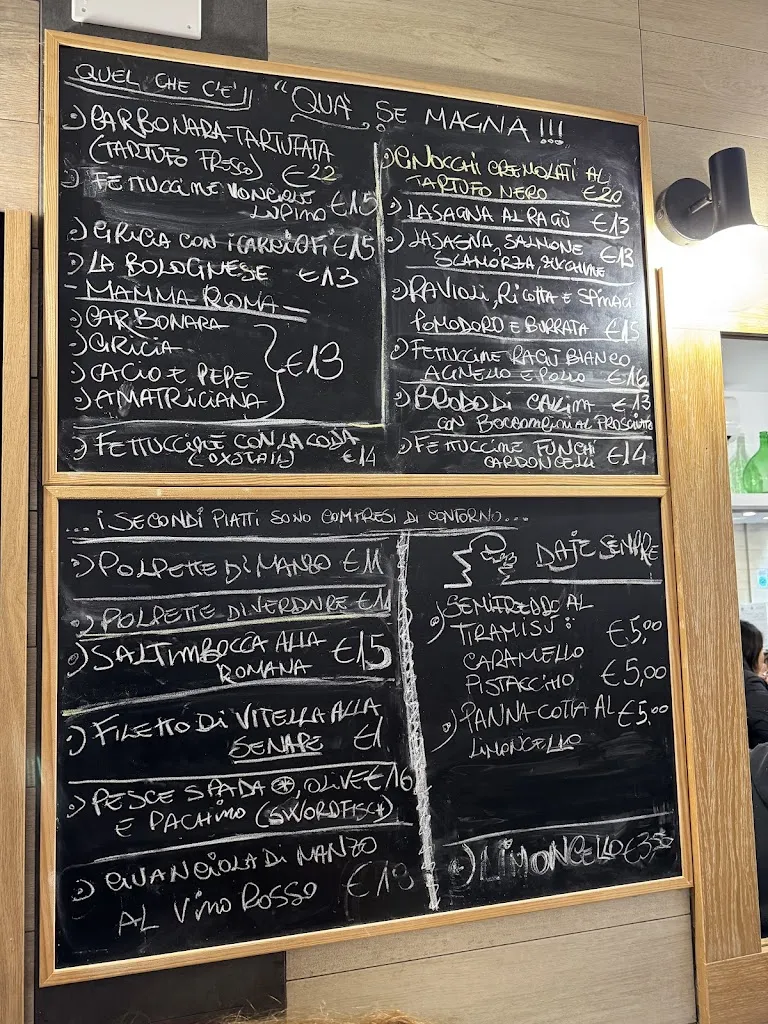 QUEL CHE C'E'!! "QUA' SE MAGNA!!!
CARBONARA TARTUFATA
(TARTUFO FRESCO) €22
FETTUCCINE VONGOLE
LUPINO €15
GRICIA CON I CARCIOFI €15
LA BOLOGNESE €13
- MAMMA ROMA -
CARBONARA
GRICIA
CACIO E PEPE
AMATRICIANA
€13
FETTUCCINE CON LA CODA
(OXTAIL) €14
GNOCCHI CREMOLATI AL
TARTUFO NERO €20
LASAGNA AL RAGÙ €13
LASAGNA, SALMONE €13
SCAMORZA, ZUCCHINE
RAVIOLI, RICOTTA E SPINACI
POMODORO E BURRATA €15
FETTUCCINE RAGÙ BIANCO
AGNELLO E POLLO €16
BRODO DI GALLINA €13
CON BOCCONCINI AL PROSCIUTTO
FETTUCCINE FUNGHI €14
CARDONCELLI
... I SECONDI PIATTI SONO COMPRESI DI CONTORNO...
POLPETTE DI MANZO €11
POLPETTE DI VERDURE €11
SALTIMBOCCA ALLA €15
ROMANA
FILETTO DI VITELLA ALLA
SENAPE
PESCE SPADA, OLIVE €16
E PACHINO (SWORDFISH)
GUANCIOLA DI MANZO
AL VINO ROSSO €18
DAJE SEMPRE
SEMIFREDDO AL
TIRAMISÙ: €5,00
CARAMELLO
PISTACCHIO €5,00
PANNA COTTA AL €5,00
LIMONCELLO
LIMONCELLO €3,50